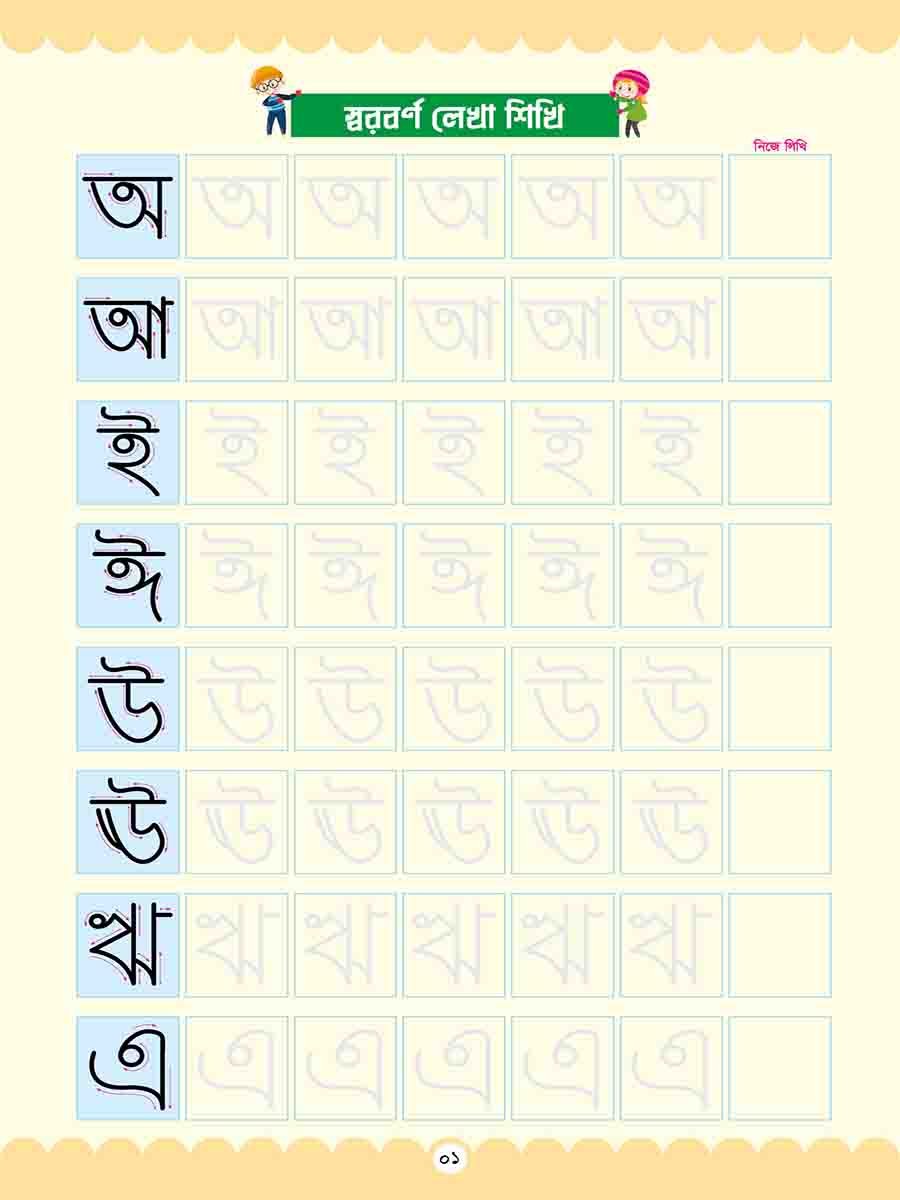 স্বরবর্ণ লেখা শিখি
নিজে লিখি
অ অ অ অ অ অ
আ আ আ আ আ আ
ই ই ই ই ই ই
ঈ ঈ ঈ ঈ ঈ ঈ
উ উ উ উ উ উ
ঊ ঊ ঊ ঊ ঊ ঊ
ঋ ঋ ঋ ঋ ঋ ঋ
এ এ এ এ এ এ
০১